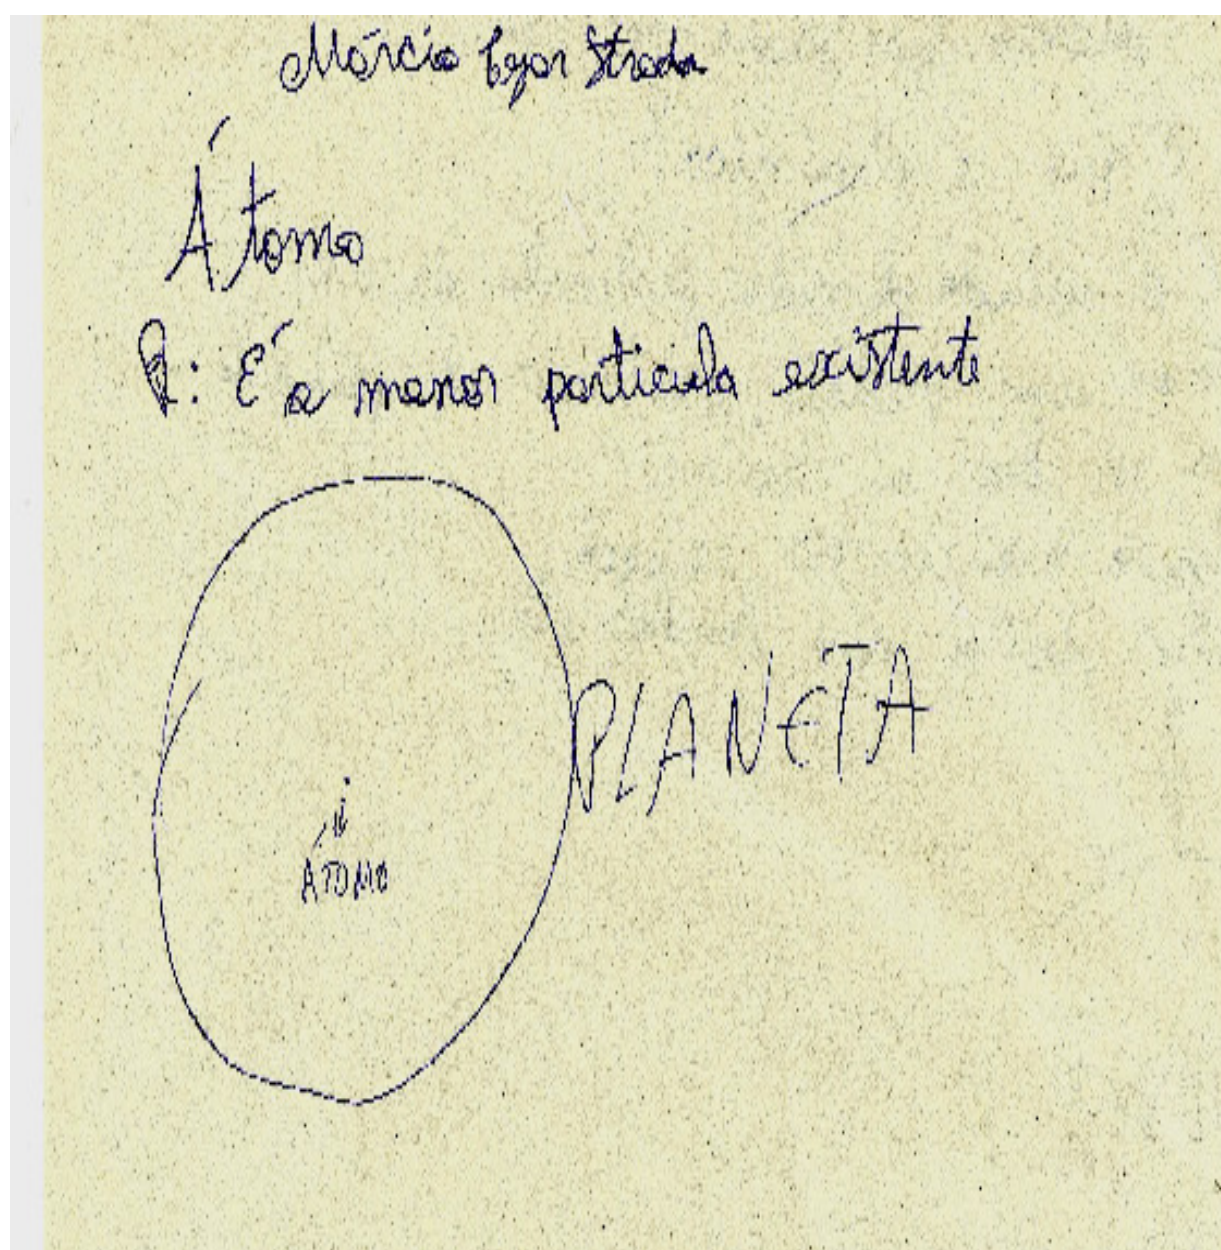 Márcio Strada
Átomo
R: É a menor particula existente
PLANETA
ÁTOMO